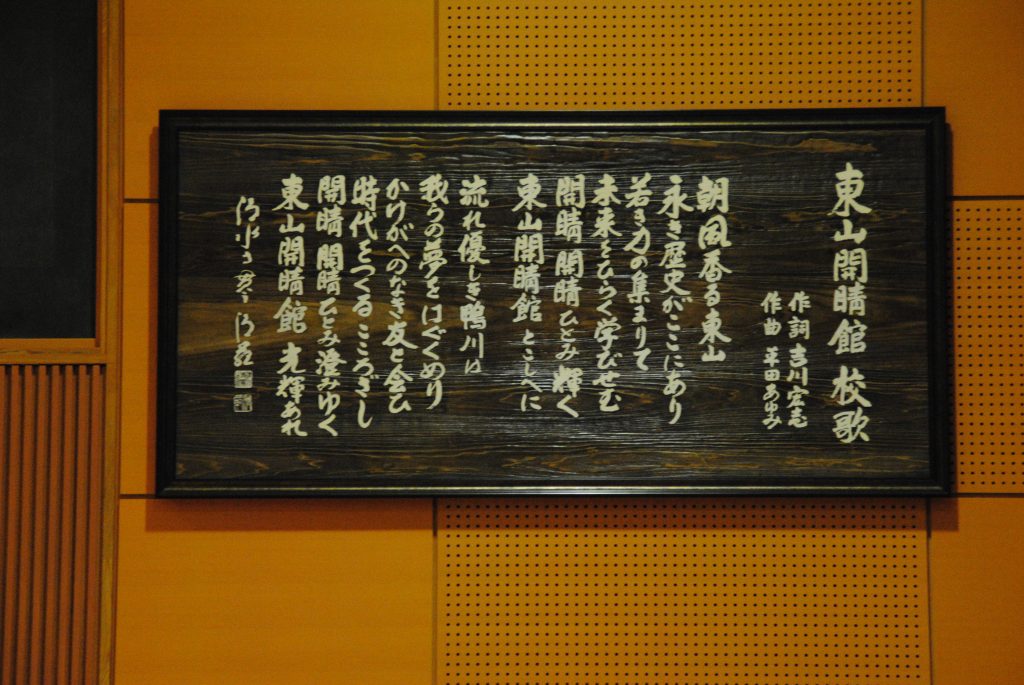 東山開睛館 校歌
作詞 吉川宏志
作曲 羊田あゆみ
朝風香る東山
永き歴史がここにあり
若き力の集まりて
未来をひらく学びせむ
開睛 開睛 ひとみ輝く
東山開睛館 とこしへに
流れ優しき鴨川は
我らの夢をはぐくめり
かけがへのなき友と会ひ
時代をつくる こころざし
開睛 開睛 ひとみ澄みゆく
東山開睛館 光輝あれ